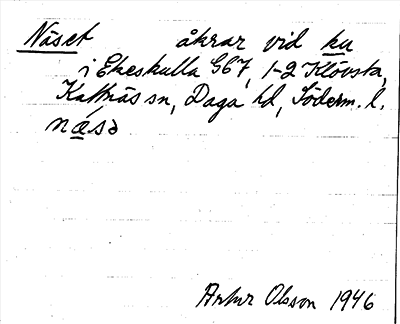 Näset åkrar vid ku
i Ekeskulla Gb7, 1-2 Klövsta,
Kattnäs sn, Daga hd, Söderm. l.
næsə
Artur Olsson 1946